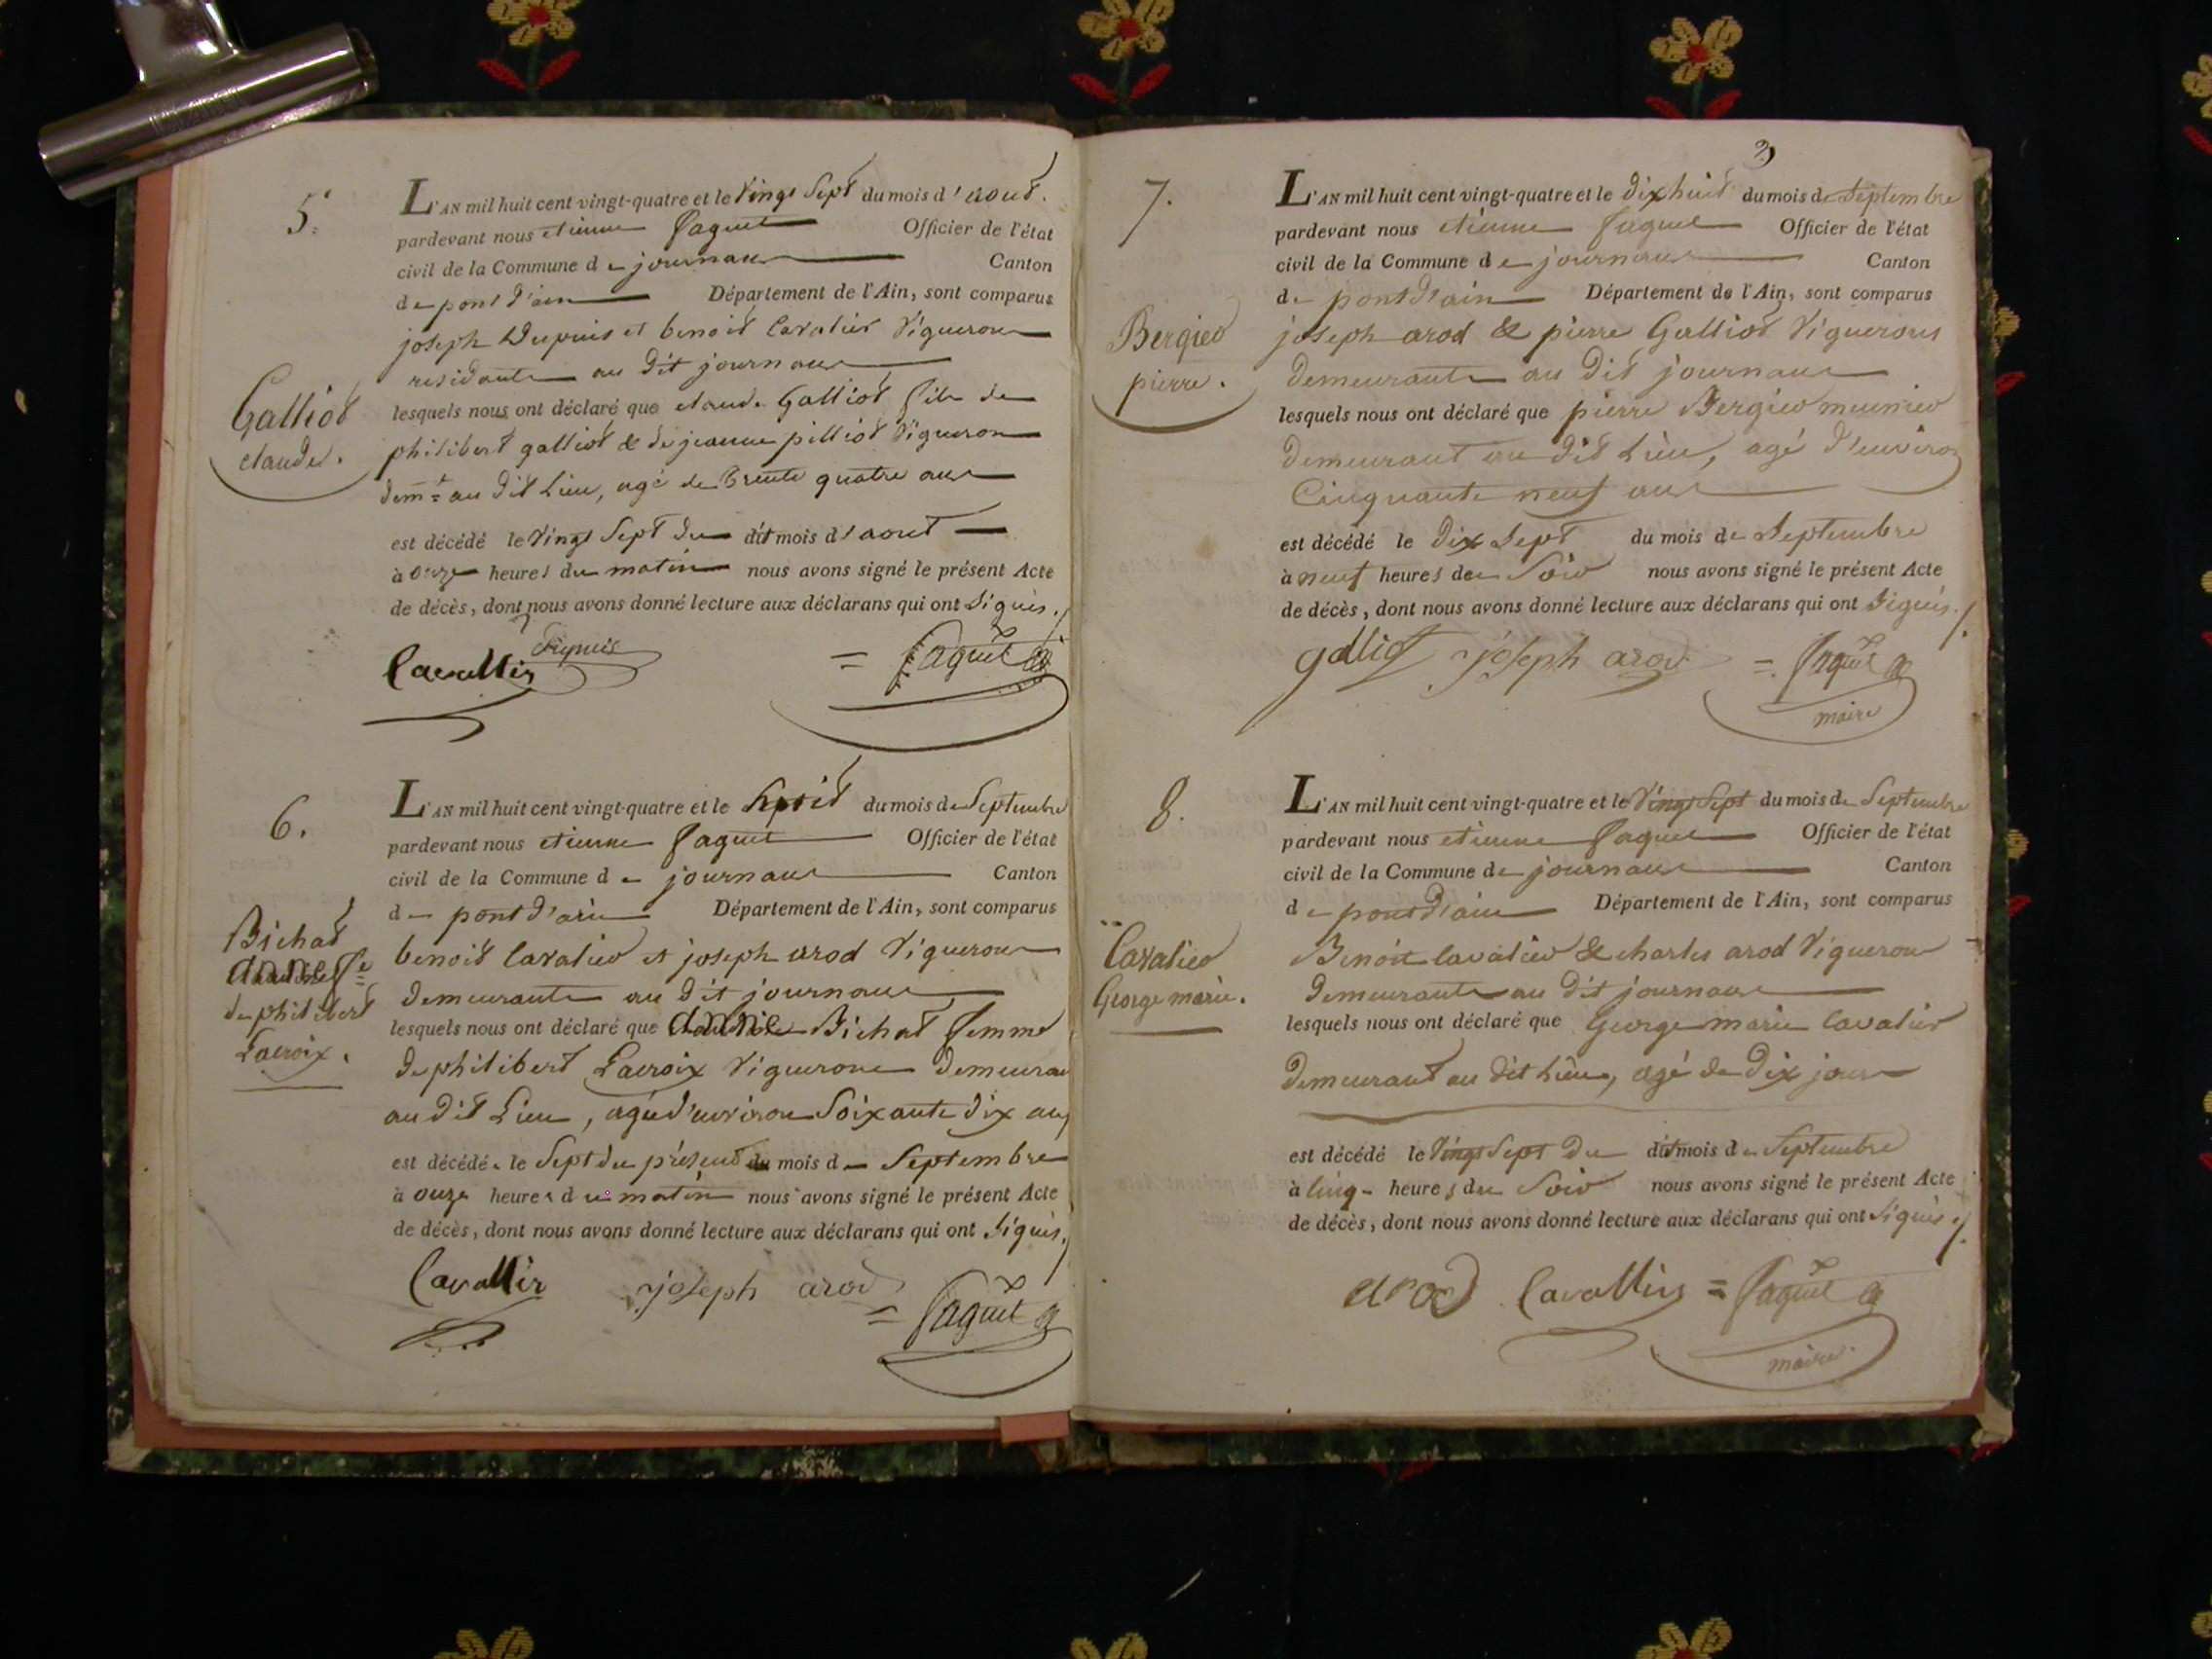 5.
L'AN mil huit cent vingt-quatre et le vingt Sept du mois d'aout.
pardevant nous etienne faguet Officier de l'état
civil de la Commune de journaux Canton
de pont d'ain Département de l'Ain, sont comparus
joseph Dupuis et benoit Cavalier Vigneron
residants au dit journaux
Galliot
claude.
lesquels nous ont déclaré que claude Galliot fils de
philibert galliot & de jeanne pilliot Vigneron
demt au dit Lieu, agé de Trente quatre ans
est décédé le vingt Sept du dit mois d'aout
à onze heures du matin nous avons signé le présent Acte
de décès, dont nous avons donné lecture aux déclarans qui ont signés./
Dupuis
Cavallier = faguet
6.
L'AN mil huit cent vingt-quatre et le du mois de Septembre
pardevant nous etienne faguet Officier de l'état
civil de la Commune de journaux Canton
de pont d'ain Département de l'Ain, sont comparus
Bichat
fe
de philibert
Lacroix.
benoit Cavalier et joseph arod Vigneron
demeurants au dit journaux
lesquels nous ont déclaré que Bichat femme
de philibert Lacroix Vigneron demeurant
au dit Lieu, agée d'environ Soixante dix ans
est décédée le Sept du présent mois de Septembre
à onze heures du matin nous avons signé le présent Acte
de décès, dont nous avons donné lecture aux déclarans qui ont signés./
Cavallier joseph arod = faguet
3
7.
L'AN mil huit cent vingt-quatre et le dix huit du mois de Septembre
pardevant nous etienne faguet Officier de l'état
civil de la Commune de journaux Canton
de pont d'ain Département de l'Ain, sont comparus
Bergier
pierre.
joseph arod & pierre Galliot Vignerons
demeurants au dit journaux
lesquels nous ont déclaré que pierre Bergier meunier
demeurant au dit Lieu, agé d'environ
Cinquante neuf ans
est décédé le dix Sept du mois de Septembre
à neuf heures de Soir nous avons signé le présent Acte
de décès, dont nous avons donné lecture aux déclarans qui ont signés./.
galliot joseph arod = faguet
maire
8.
L'AN mil huit cent vingt-quatre et le vingt Sept du mois de Septembre
pardevant nous etienne faguet Officier de l'état
civil de la Commune de journaux Canton
de pont d'ain Département de l'Ain, sont comparus
Cavalier
George marie.
Benoit Cavalier & charles arod Vigneron
demeurants au dit journaux
lesquels nous ont déclaré que George marie Cavalier
demeurant au dit Lieu, agé de dix jours
est décédé le vingt Sept du dit mois de Septembre
à Cinq heures du Soir nous avons signé le présent Acte
de décès, dont nous avons donné lecture aux déclarans qui ont signés./.
arod Cavallier = faguet
maire.